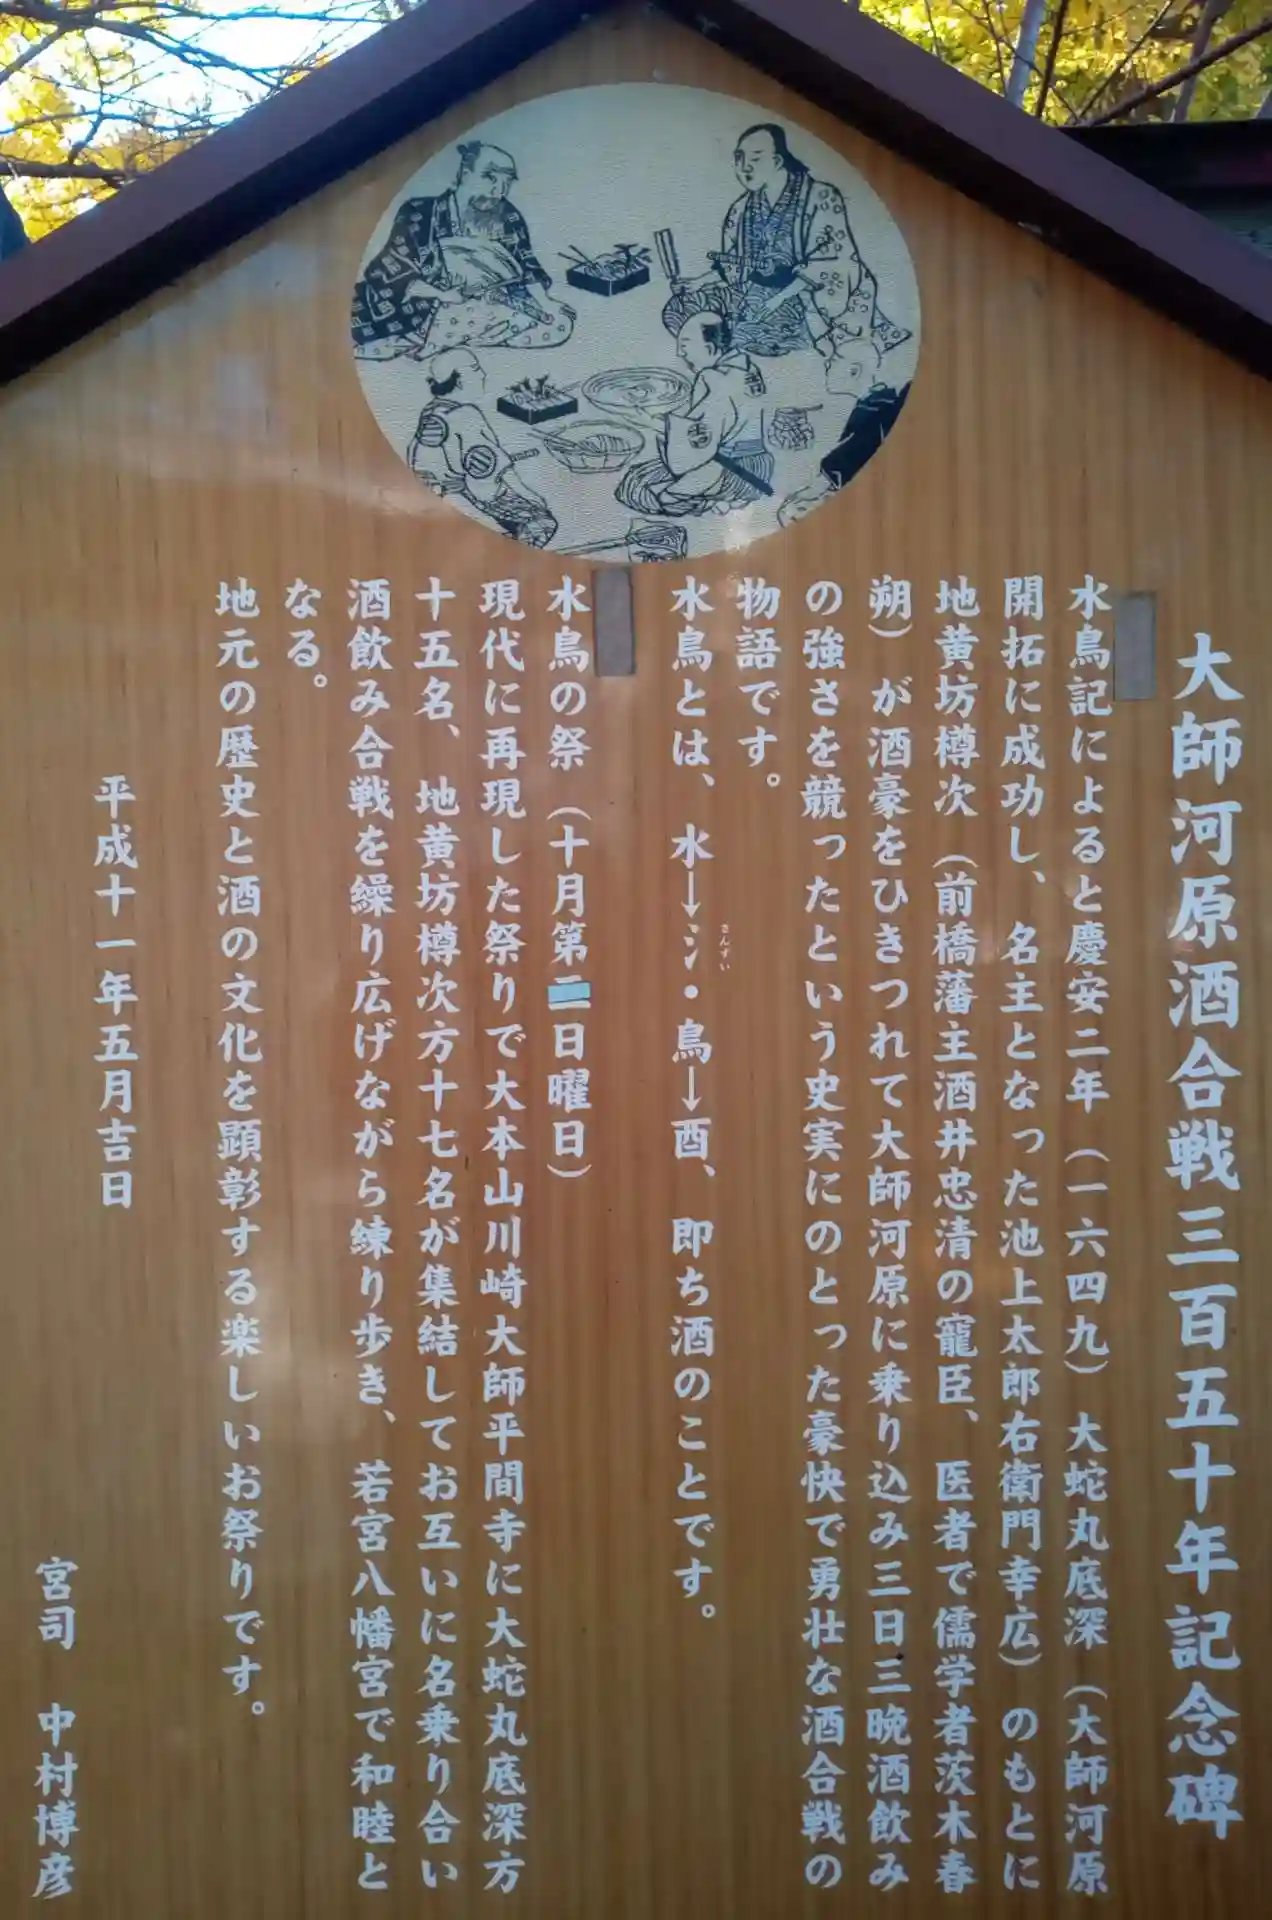 大師河原酒合戦三百五十年記念碑
水鳥記によると慶安二年（一六四九）大蛇丸底深（大師河原
開拓に成功し、名主となった池上太郎右衛門幸広）のもとに
地黄坊樽次（前橋藩主酒井忠清の寵臣、医者で儒学者茨木春
朔）が酒豪をひきつれて大師河原に乗り込み三日三晩酒飲み
の強さを競ったという史実にのとった豪快で勇壮な酒合戦の
物語です。
水鳥とは、水→氵・鳥→酉、即ち酒のことです。
さんずい
水鳥の祭（十月第二日曜日）
現代に再現した祭りで大本山川崎大師平間寺に大蛇丸底深方
十五名、地黄坊樽次方十七名が集結してお互いに名乗り合い
酒飲み合戦を繰り広げながら練り歩き、若宮八幡宮で和睦と
なる。
地元の歴史と酒の文化を顕彰する楽しいお祭りです。
平成十一年五月吉日
宮司　中村博彦